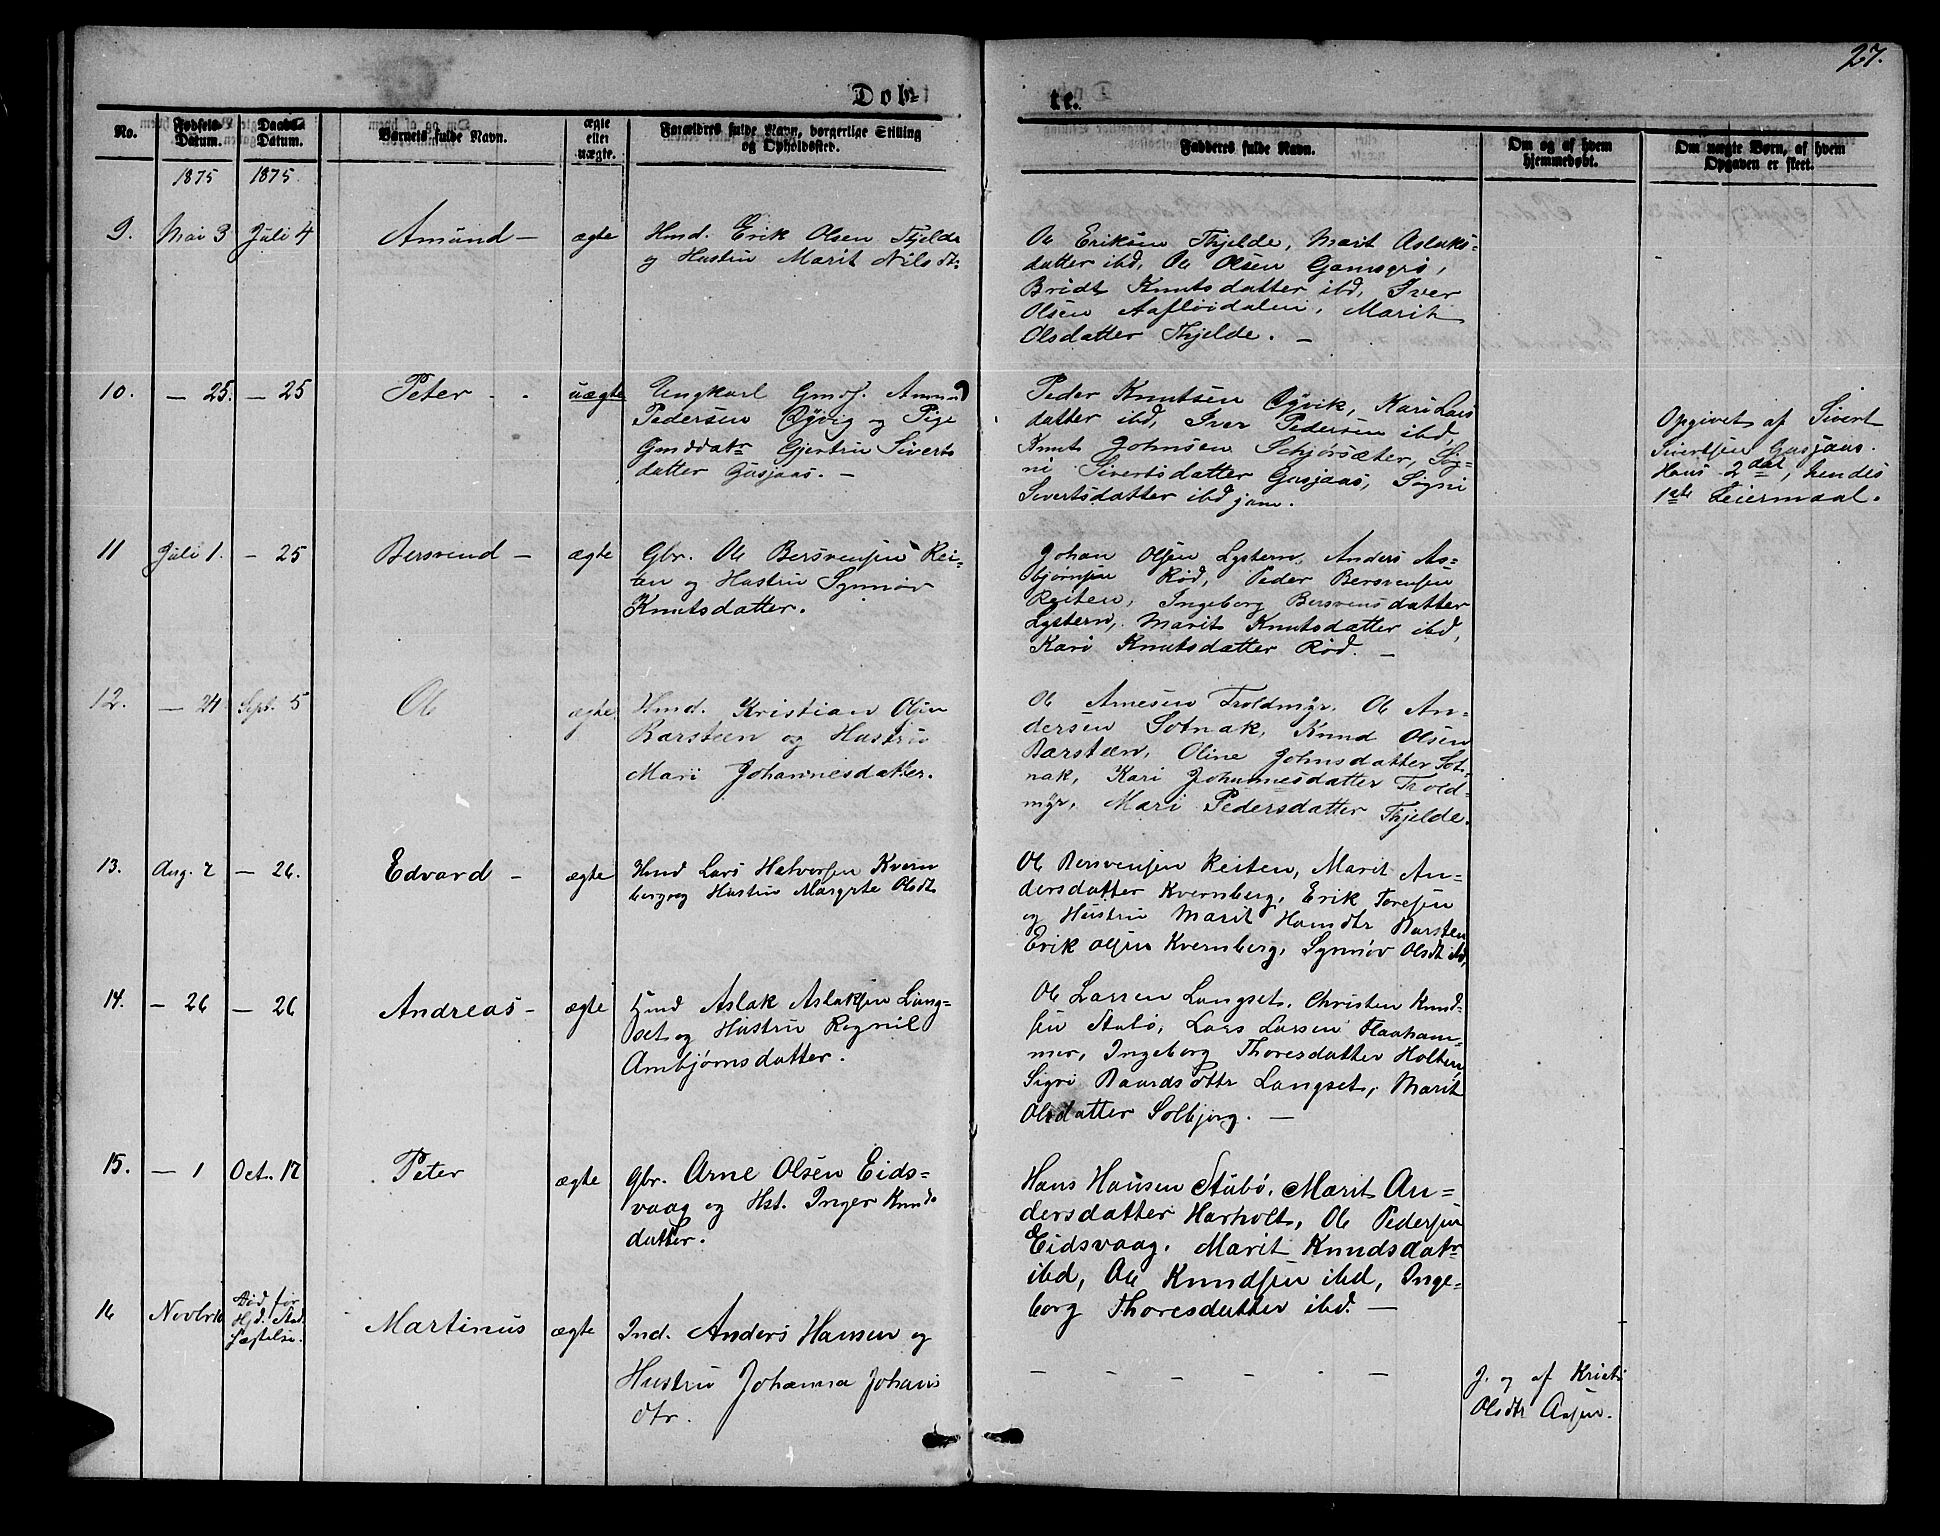 27.
Dob-
te.
No.
Fødsels-
Datum.
Daabs-
Datum.
Barnets fulde Navn.
ægte
eller
uægte.
Forældres fulde Navn, borgerlige Stilling
og Opholdssted.
Fadderes fulde Navn.
Om og af hvem
hjemmedøbt.
Om uægte Børn, af hvem
Opgaven er skeet.
1875
1875.
9.
Mai 3
Juli 4
Amund —
ægte
Hmd. Erik Olsen Thjelde
og Hustru Marit Nilsdtr
Ole Eriksen Thjelde, Marit Aslaks-
datter ibd, Ole Olsen
Bridt Knutsdatter ibd, Iver
Olsen Aafløidalen, Marit
Olsdatter Thjelde. —
10.
— 25.
— 25
Peter - -
uægte
Ungkarl Gmdf.
Pedersen Øyvig og Pige
Gmddatr Gjertru Siverts
datter Gusjaas. —
Peder Knutsen Øyvik, Kari Lars
datter ibd, Iver Pedersen ibd,
Knut Johnsen Schjørsæter, Sig-
ni Sivertsdatter Gusjaas, Signi
Sivertsdatter ibd jom.
Opgivet af Sivert
Sivertsen Gusjaas.
Hans 2det, hendes
1ste Leiermaal.
11
Juli 1.
— 25
Bersvend —
ægte
Gbr. Ole Bersvensen Rei-
ten og Hustru Synnøv
Knutsdatter.
Johan Olsen Lystern, Anders As-
bjørnsen Rød, Peder Bersvensen
Reiten, Ingeborg Bersvensdatter
Lystern, Marit Knutsdatter ibd,
Kari Knutsdatter Rød. —
12.
— 24
Sept. 5
Ole
ægte
Hmd. Kristian Olsen
Barsteen og Hustru
Mari Johannesdatter.
Ole Arnesen Troldmyr. Ole An-
dersen Sotnak, Knud Olsen
Barsteen, Oline Johnsdatter Sot-
nak, Kari Johannesdatter Trold-
myr, Mari Pedersdatter Thjelde.
13.
Aug. 2
— 26.
Edvard —
ægte
Hmd Lars Halvorsen Kvern
berg og Hustru Margrete Olsdt
Ole Bersvensen Reiten, Marit An-
dersdatter Kvernberg, Erik Toresen
og Hustru Marit Hansdtr Barsten
Erik Olsen Kvernberg, Synnøv Olsdt ibd,
14.
— 26
— 26
Andreas —
ægte
Hmd Aslak Aslaksen Lang-
set og Hustru Regnil
Ambjørnsdatter.
Ole Larsen Langset, Christen Knud-
sen Stubø, Lars Larsen Flaaham-
mer, Ingeborg Thoresdatter Holten,
Sigri Baardsdttr Langset, Marit
Olsdatter Solbjørg. —
15.
— 1
Oct. 17
Peter
ægte
Gbr. Arne Olsen Eids-
vaag og Hst. Inger Knuds
datter.
Hans Hansen Stubø, Marit An-
dersdatter Harholt, Ole Pedersen
Eidsvaag, Marit Knudsdatr
ibd, Ole Knudsen ibd, Inge-
borg Thoresdatter ibd. —
16
Novbr 10
Død før
Hjd. Stad
fæstelse.
Martinus
ægte
Ind. Anders Hansen og
Hustru Johanna Johans
dtr.
— — — — — —
J. og af Kristi
Olsdtr Aasen.